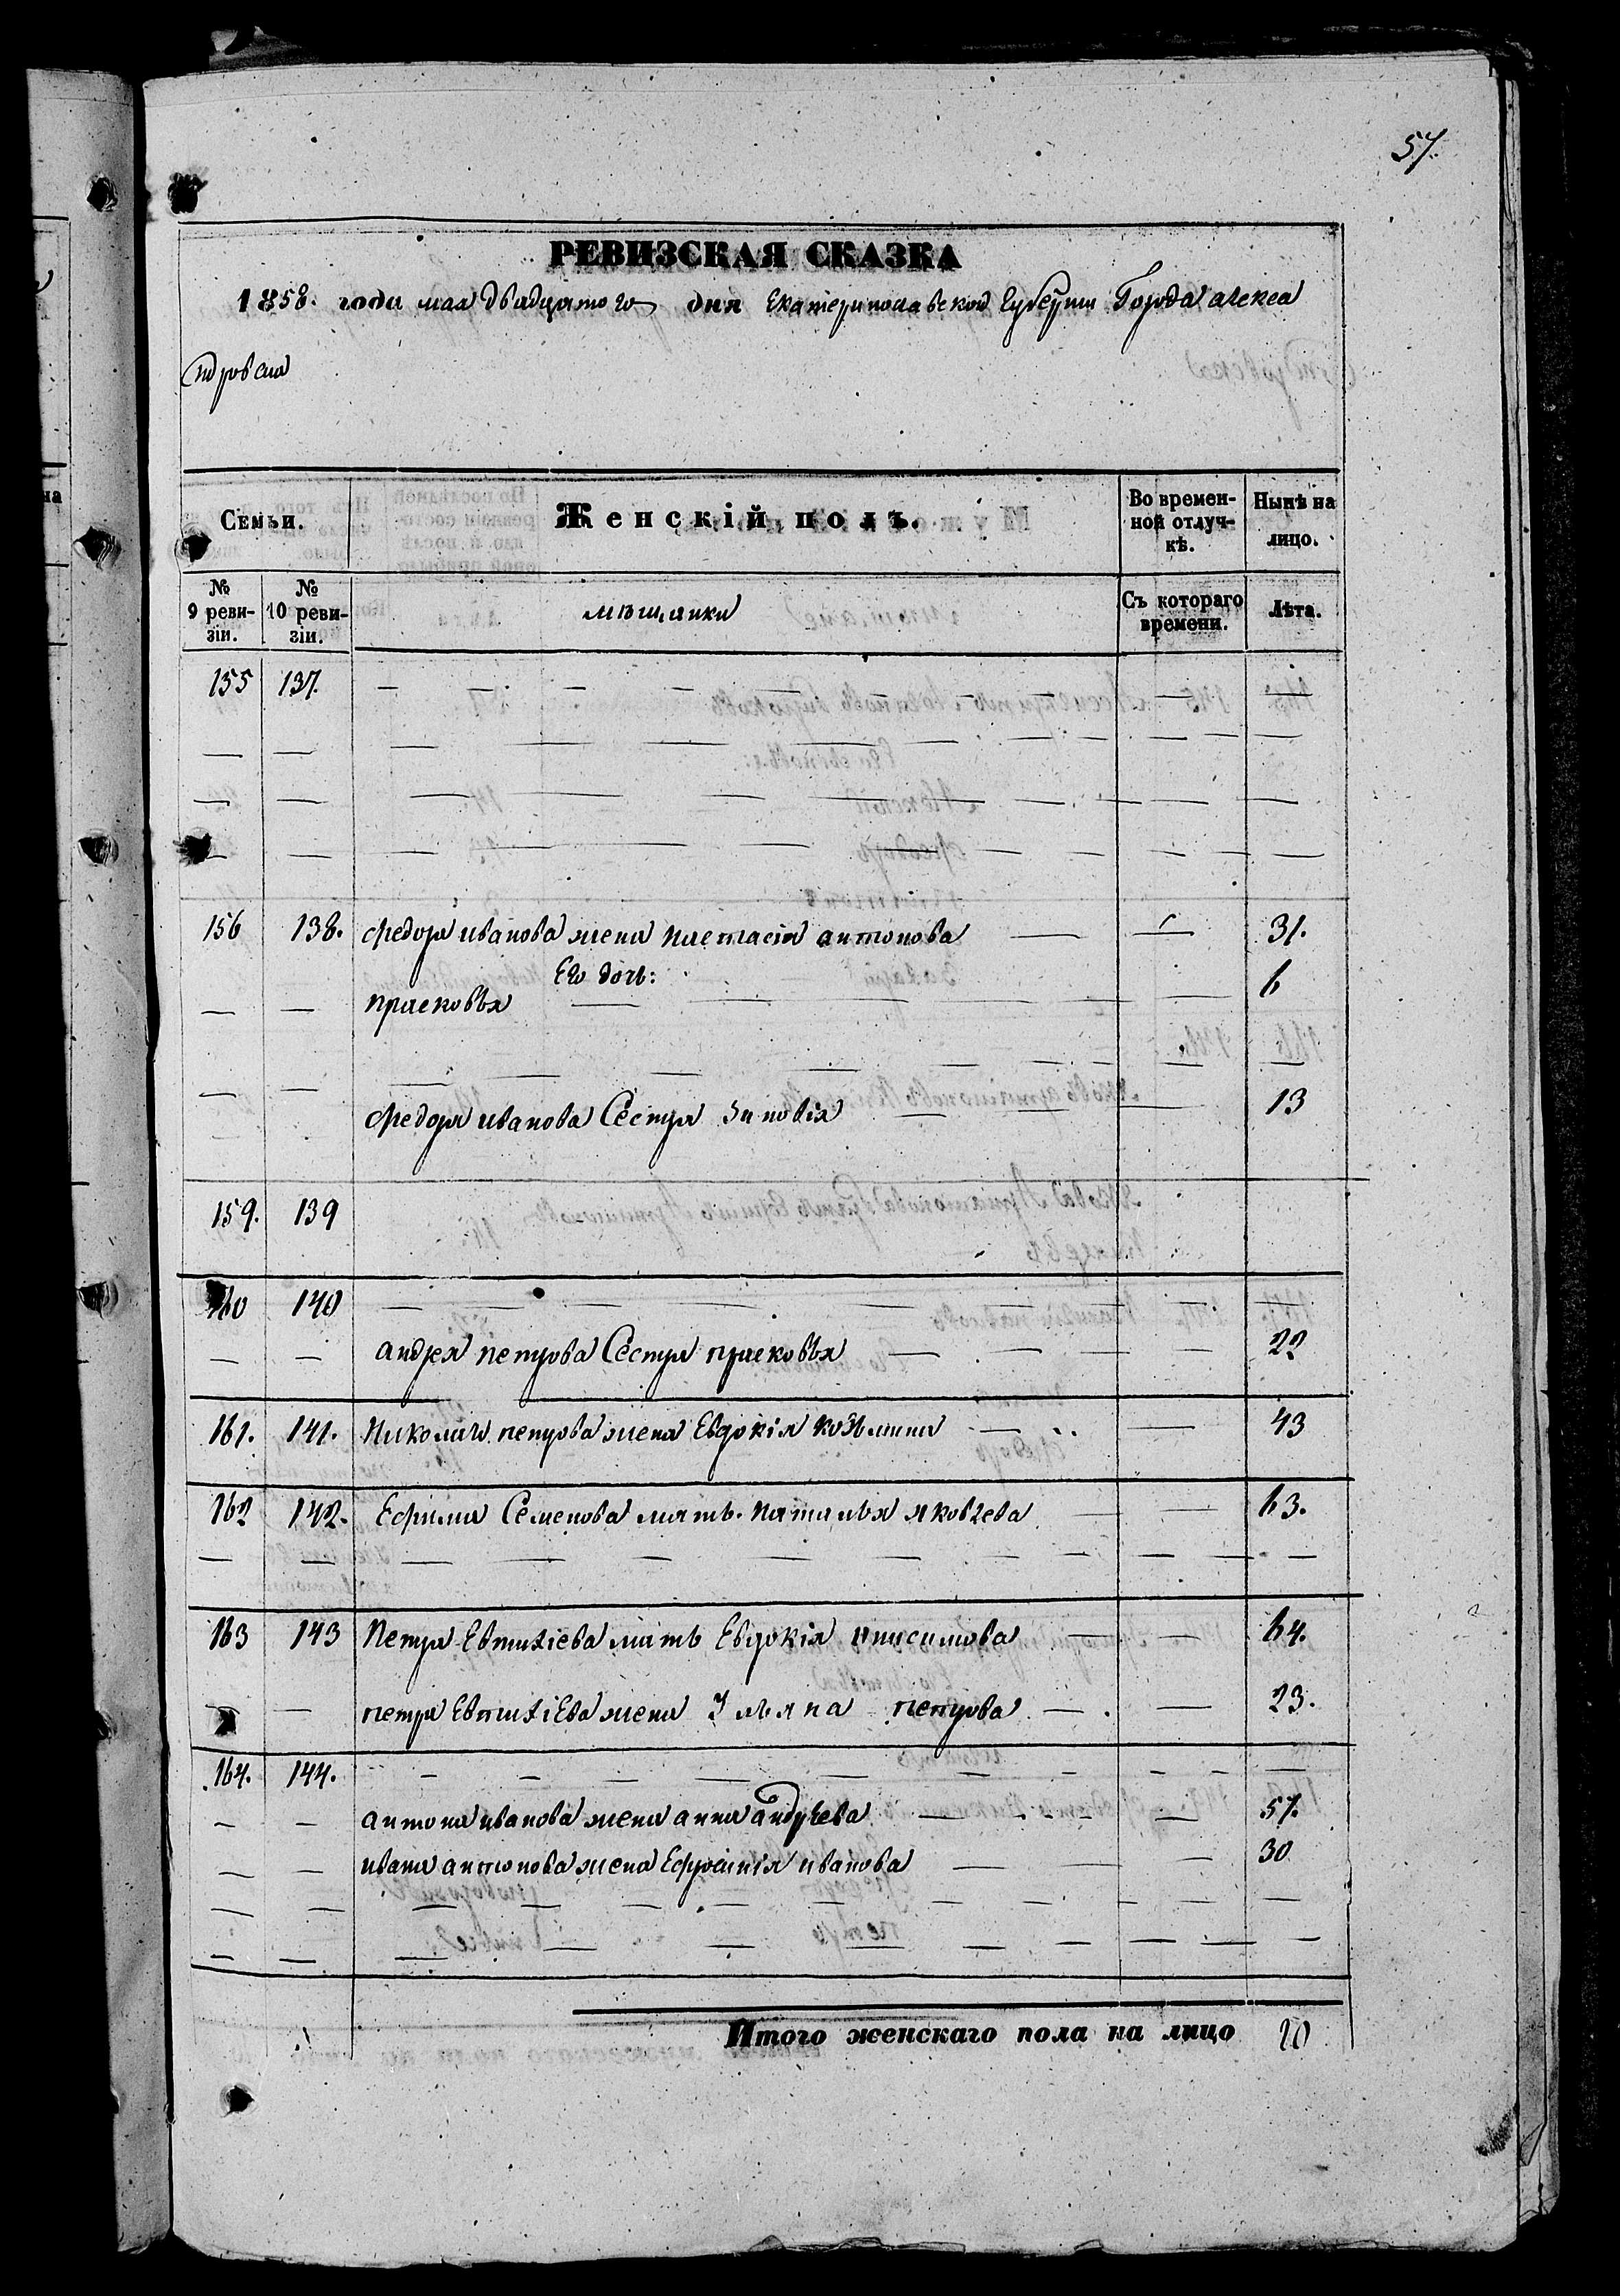 57.
РЕВИЗСКАЯ СКАЗКА
1858. года мая двадцатого дня Екатеринославской Губерніи Города алекса
ндровска
Семьи. Женскій полъ. Во времен- Нынѣ на
ной отлуч- лицо.
кѣ.
№ № мѣщанки Съ котораго Лѣта.
9 реви- 10 реви- времени.
зіи. зіи.
155 137.
156 138. Федора иванова жена настасія антонова 31.
Его дочь:
прасковья 6
Федора иванова Сестра зиновія 13
159. 139
160 140
андрея петрова Сестра прасковья 22
161. 141. Николая петрова жена Евдокія козьмина 43
162 142. Ефима Семенова мать. наталья яковлева 63.
163 143 Петра Евтихіева мать Евдокія анисимова 64.
петра Евтихіева жена петрова 23.
164. 144.
антона иванова жена анна андреева 57.
ивана антонова жена Ефросинія иванова 30
Итого женскаго пола на лицо